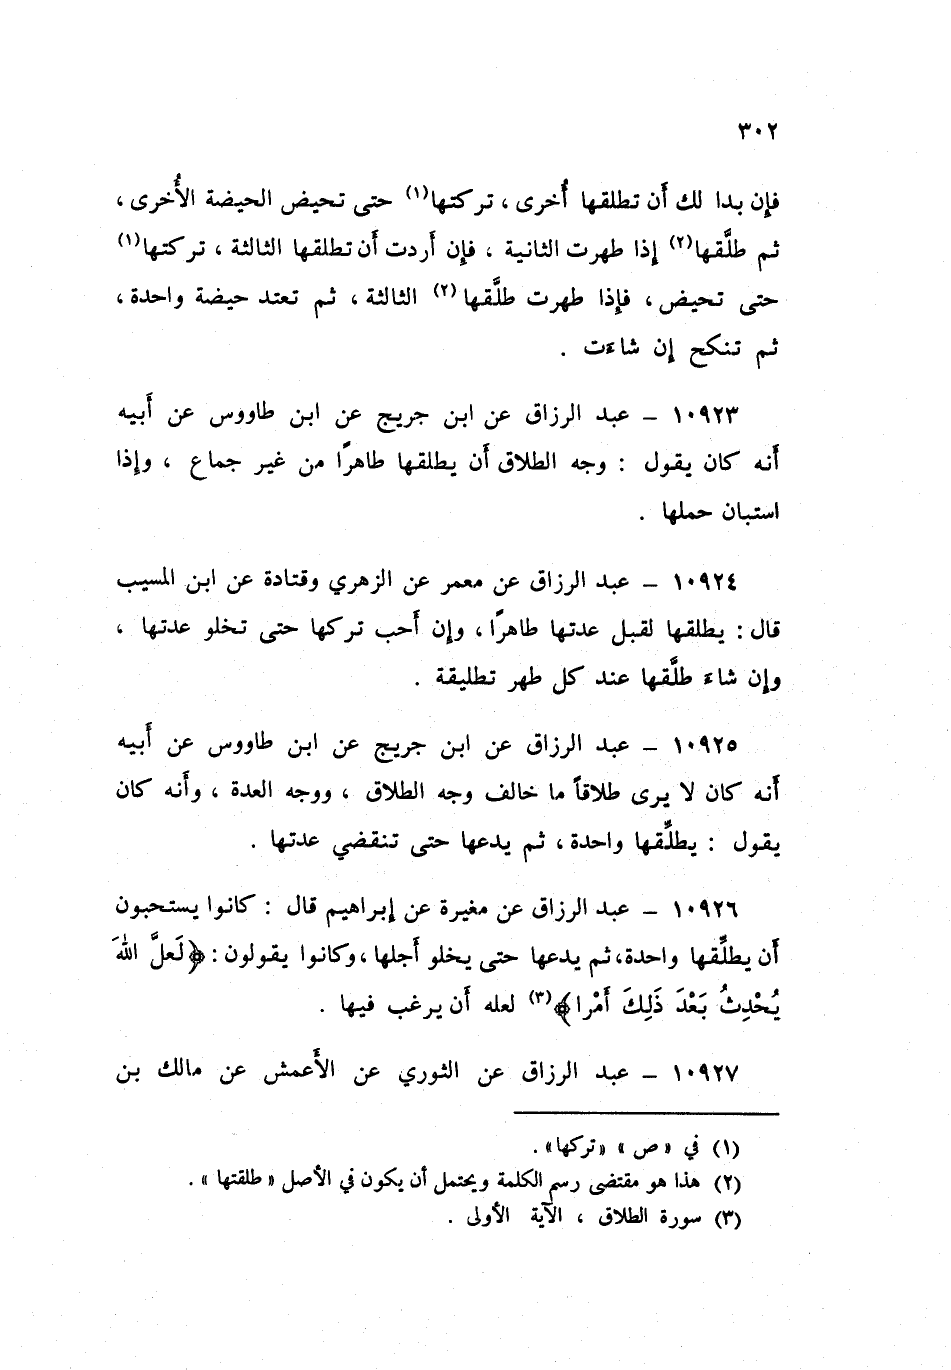 ٣٠٢
فإن بدا لك أَن تطلقها أُخرى ، تركتها(١) حتى تحيض الحيضة الأُخرى ،
ثم طلَّقها(٢) إذا طهرت الثانية ، فإن أَردت أَن تطلقها الثالثة ، تركتها(١)
حتى تحيض ، فإذا طهرت طلَّقها(٢) الثالثة ، ثم تعتد حيضة واحدة ،
ثم تنكح إن شاءت .
١٠٩٢٣ – عبد الرزاق عن ابن جريج عن ابن طاووس عن أَبيه
أَنه كان يقول : وجه الطلاق أَن يطلقها طاهرًا من غير جماع ، وإذا
استبان حملها .
١٠٩٢٤ – عبد الرزاق عن معمر عن الزهري وقتادة عن ابن المسيب
قال : يطلقها لقبل عدتها طاهرًا ، وإن أَحب تركها حتى تخلو عدتها ،
وإن شاء طلَّقها عند كل طهر تطليقة .
١٠٩٢٥ – عبد الرزاق عن ابن جريج عن ابن طاووس عن أَبيه
أَنه كان لا يرى طلاقاً ما خالف وجه الطلاق ، ووجه العدة ، وأَنه كان
يقول : يطلِّقها واحدة ، ثم يدعها حتى تنقضي عدتها .
١٠٩٢٦ – عبد الرزاق عن مغيرة عن إبراهيم قال : كانوا يستحبون
أَن يطلِّقها واحدة، ثم يدعها حتى يخلو أَجلها ، وكانوا يقولون : ﴿لَعلَّ اللهَ
يُحْدِثُ بَعْدَ ذَلِكَ أَمْرا﴾(٣) لعله أَن يرغب فيها .
١٠٩٢٧ – عبد الرزاق عن الثوري عن الأَعمش عن مالك بن
(١) في « ص » «تركها» .
(٢) هذا هو مقتضى رسم الكلمة ويحتمل أن يكون في الأصل « طلقتها » .
(٣) سورة الطلاق ، الآية الأولى .